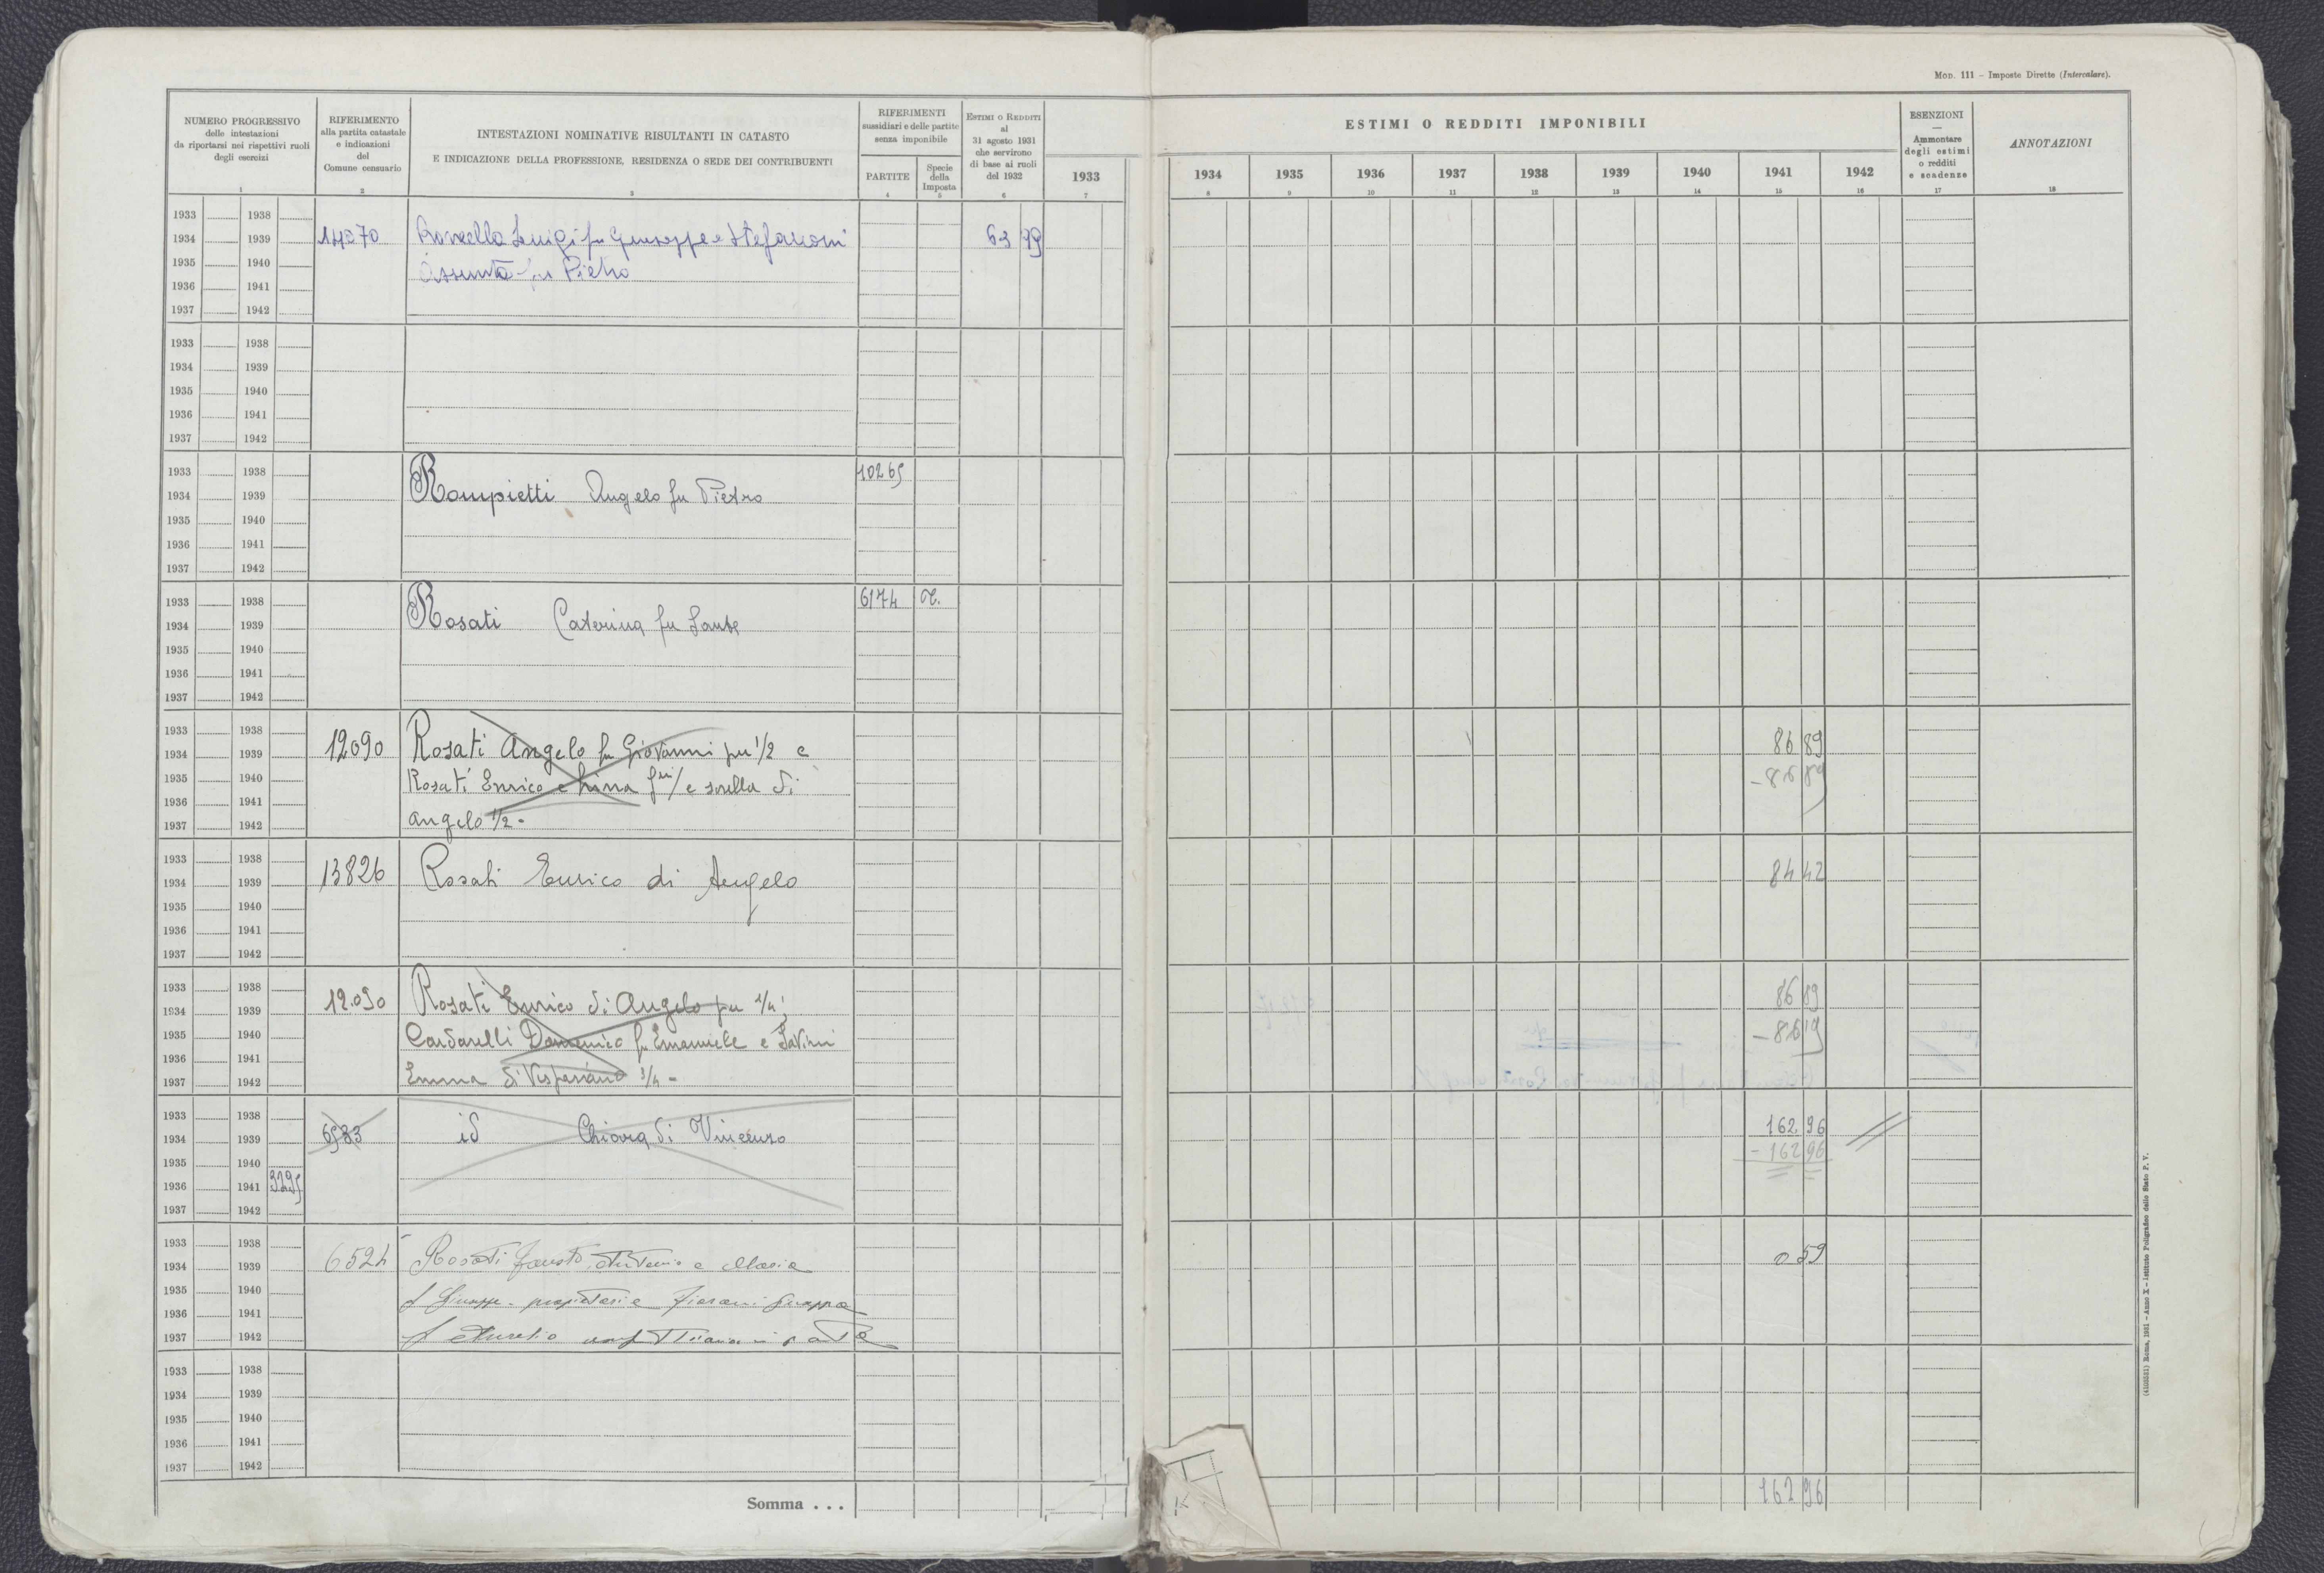 MOD. 111 – Imposte Dirette (Intercalare).
NUMERO PROGRESSIVO
delle intestazioni
da riportarsi nei rispettivi ruoli
degli esercizi
1
RIFERIMENTO
alla partita catastale
e indicazioni
del
Comune censuario
2
INTESTAZIONI NOMINATIVE RISULTANTI IN CATASTO
E INDICAZIONE DELLA PROFESSIONE, RESIDENZA O SEDE DEI CONTRIBUENTI
3
RIFERIMENTI
sussidiari e delle partite
senza imponibile
PARTITE
4
Specie
della
Imposta
5
ESTIMI O REDDITI
al
31 agosto 1931
che servirono
di base ai ruoli
del 1932
6
ESTIMI O REDDITI IMPONIBILI
1933 1934 1935 1936 1937 1938 1939 1940 1941 1942
7 8 9 10 11 12 13 14 15 16
ESENZIONI
—
Ammontare
degli estimi
o redditi
e scadenze
17
ANNOTAZIONI
18
1933 1938
1934 1939 Luigi fu Giuseppe e Stefanoni 63 99
1935 1940 Assunta fu Pietro
1936 1941
1937 1942
1933 1938
1934 1939
1935 1940
1936 1941
1937 1942
1933 1938 10265
1934 1939 Rompietti Angelo fu Pietro
1935 1940
1936 1941
1937 1942
1933 1938 6174
1934 1939 Rosati Caterina fu Sante
1935 1940
1936 1941
1937 1942
1933 1938
1934 1939 12090 Rosati Angelo fu Giovanni per 1/2 e 86 89
1935 1940 Rosati Enrico e sorella di – 86 89
1936 1941
1937 1942 Angelo 1/2 -
1933 1938
1934 1939 13826 Rosati Enrico di Angelo 84 42
1935 1940
1936 1941
1937 1942
1933 1938 86 89
1934 1939 12.090 Rosati Enrico di Angelo per 1/4;
1935 1940 Cardarelli Domenico fu Emanuele e
1936 1941
1937 1942 Emma di Vespasiano 3/4 -
1933 1938
1934 1939 id Chiara di Vincenzo 162 96
1935 1940 – 162 96
1936 1941 3295
1937 1942
1933 1938
1934 1939 6524 Rosati Fausto, Antonio e Maria 0 59
1935 1940
1936 1941 f Giuseppe - proprietari e
1937 1942 f Aurelio in parte
1933 1938
1934 1939
1935 1940
1936 1941
1937 1942
Somma . . . 162 96
(4100531) Roma, 1931 – Anno X – Istituto Poligrafico dello Stato P. V.